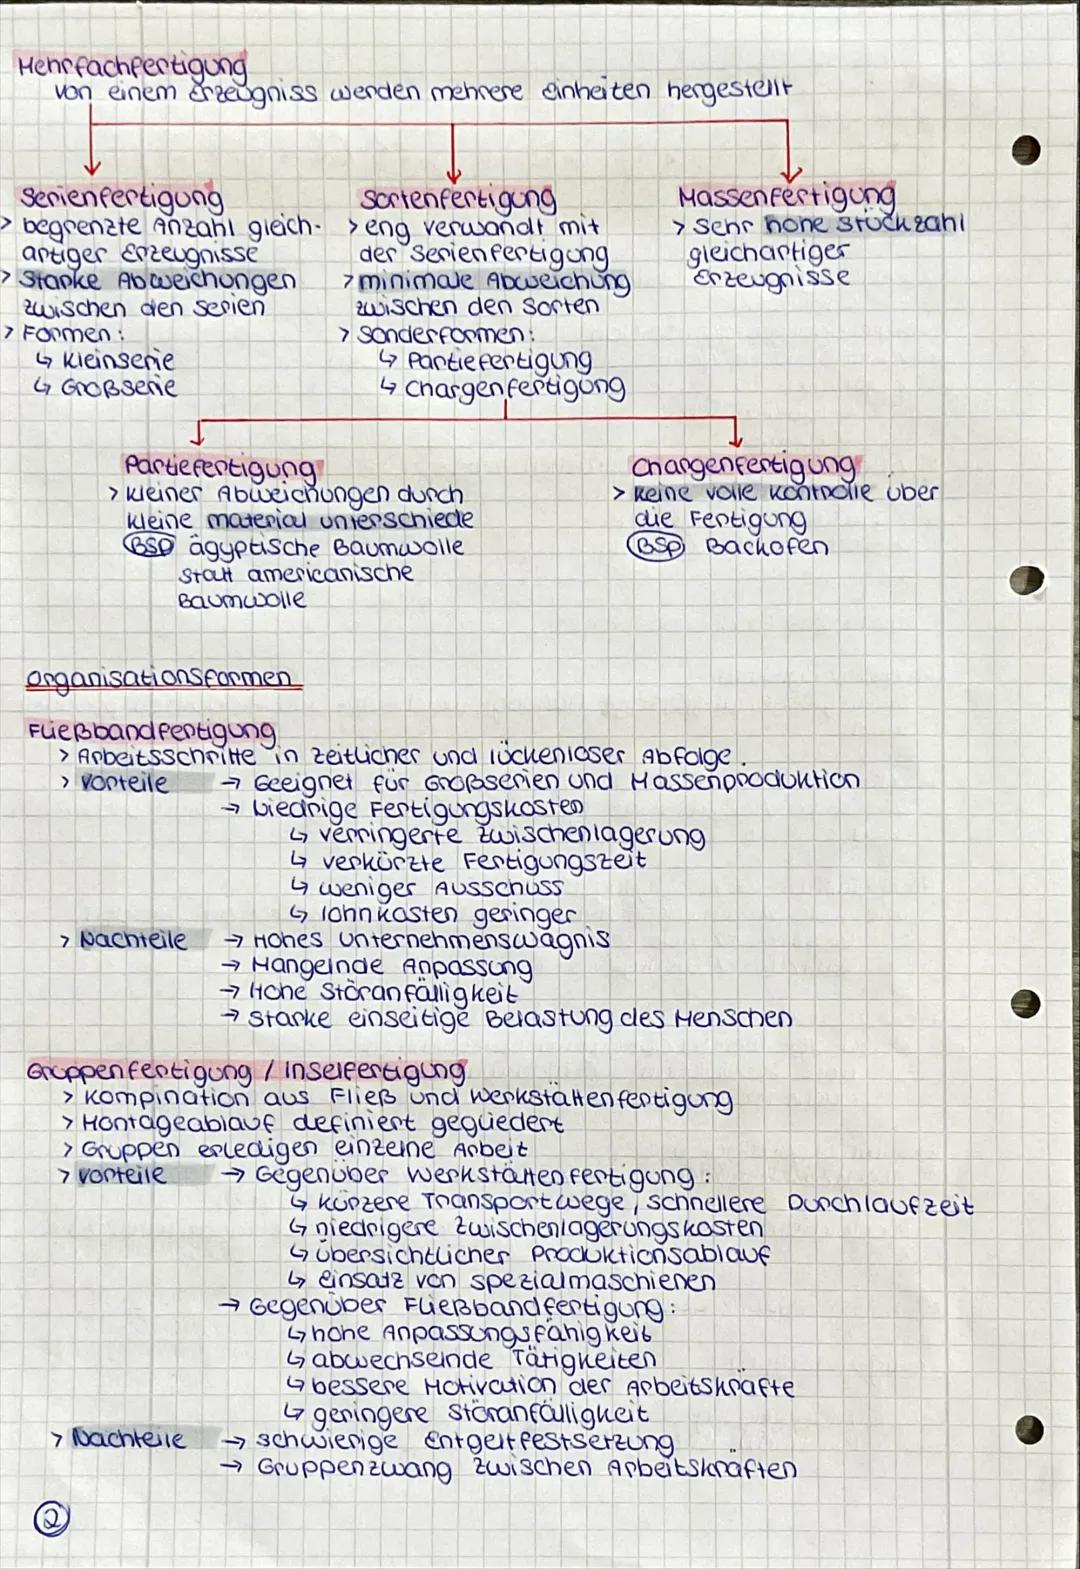 Mehrfachfertigung
von einem Erzeugniss werden mehrere einheiten hergestellt
Serienfertigung
> begrenzte Anzahl gleich-
artiger Erzeugnisse
> Starke Abweichungen
zwischen den serien
> Formen:
↳ Kleinserie
↳ Großserie
Sortenfertigung
> eng verwandt mit
der Serienfertigung
> minimale Abweichung
zwischen den Sorten
> Sonderformen:
↳ Partiefertigung
↳ Chargenfertigung
Massenfertigung
> Sehr hohe Stückzahl
gleichartiger
Erzeugnisse
Partiefertigung
> kleiner Abweichungen durch
kleine material unterschiede
BSP ägyptische Baumwolle
statt americanische
Baumwolle
Chargenfertigung
> keine volle Kontrolle über
die Fertigung
BSP Backofen
Organisationsformen
Fließbandfertigung
> Arbeitsschritte in zeitlicher und lückenloser Abfolge.
> Vorteile → Geeignet für Großserien und Massenproduktion
→ Niedrige Fertigungskosten
↳ verringerte Zwischenlagerung
↳ verkürzte Fertigungszeit
↳ weniger Ausschuss
↳ lohnkosten geringer
> Nachteile → Hohes Unternehmenswagnis
→ Mangelnde Anpassung
→ Hohe Störanfälligkeit
→ starke einseitige Belastung des Menschen
Gruppenfertigung / Inselfertigung
> Kompination aus Fließ und Werkstättenfertigung
> Montageablauf definiert gegliedert
> Gruppen erledigen einzelne Arbeit
> Vorteile → Gegenüber Werkstättenfertigung:
↳ kürzere Transportwege, schnellere Durchlaufzeit
↳ niedrigere Zwischenlagerungskosten
↳ übersichtlicher Produktionsablauf
↳ einsatz von spezialmaschienen
→ Gegenüber Fließbandfertigung:
↳ hohe Anpassungsfähigkeit
↳ abwechselnde Tätigkeiten
↳ bessere Motivation der Arbeitskräfte
↳ geringere Störanfälligkeit
> Nachteile → schwierige Entgeltfestsetzung
→ Gruppenzwang zwischen Arbeitskräften
2